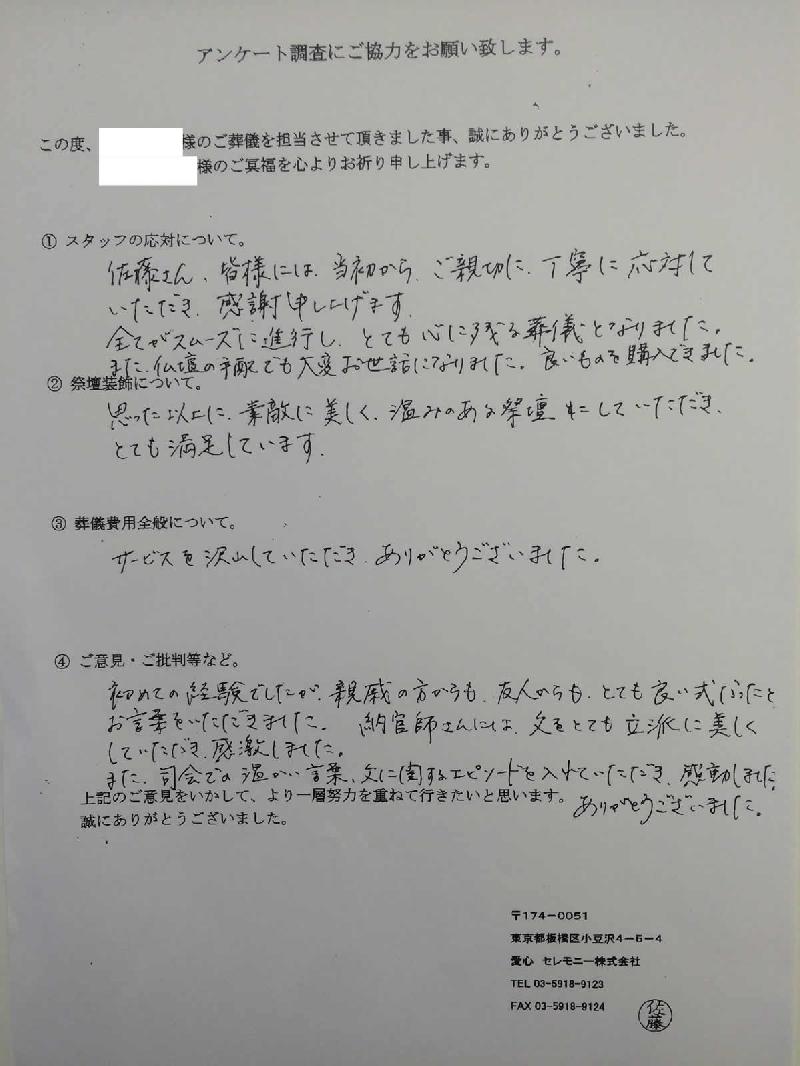 アンケート調査にご協力をお願い致します。
この度、
様のご葬儀を担当させて頂きました事、誠にありがとうございました。
様のご冥福を心よりお祈り申し上げます。
① スタッフの応対について。
佐藤さん、皆様には、当初から、ご親切に、丁寧に応対して
いただき、感謝申し上げます。
全てがスムーズに進行し、とても心に残る葬儀となりました。
また、仏壇の手配でも大変お世話になりました。良いものを購入できました。
② 祭壇装飾について。
思った以上に、素敵に美しく、温みのある祭壇にしていただき、
とても満足しています。
③ 葬儀費用全般について。
サービスを沢山していただき、ありがとうございました。
④ ご意見・ご批判等など。
初めての経験でしたが、親戚の方からも、友人からも、とても良い式だったと
お言葉をいただきました。 納官師さんには、父をとても立派に美しく
していただき、感激しました。
また、司会での温かい言葉、父に関するエピソードを入れていただき、感動しました。
ありがとうございました。
上記のご意見をいかして、より一層努力を重ねて行きたいと思います。
誠にありがとうございました。
〒174-0051
東京都板橋区小豆沢4-6-4
愛心 セレモニー株式会社
TEL 03-5918-9123
FAX 03-5918-9124
佐藤